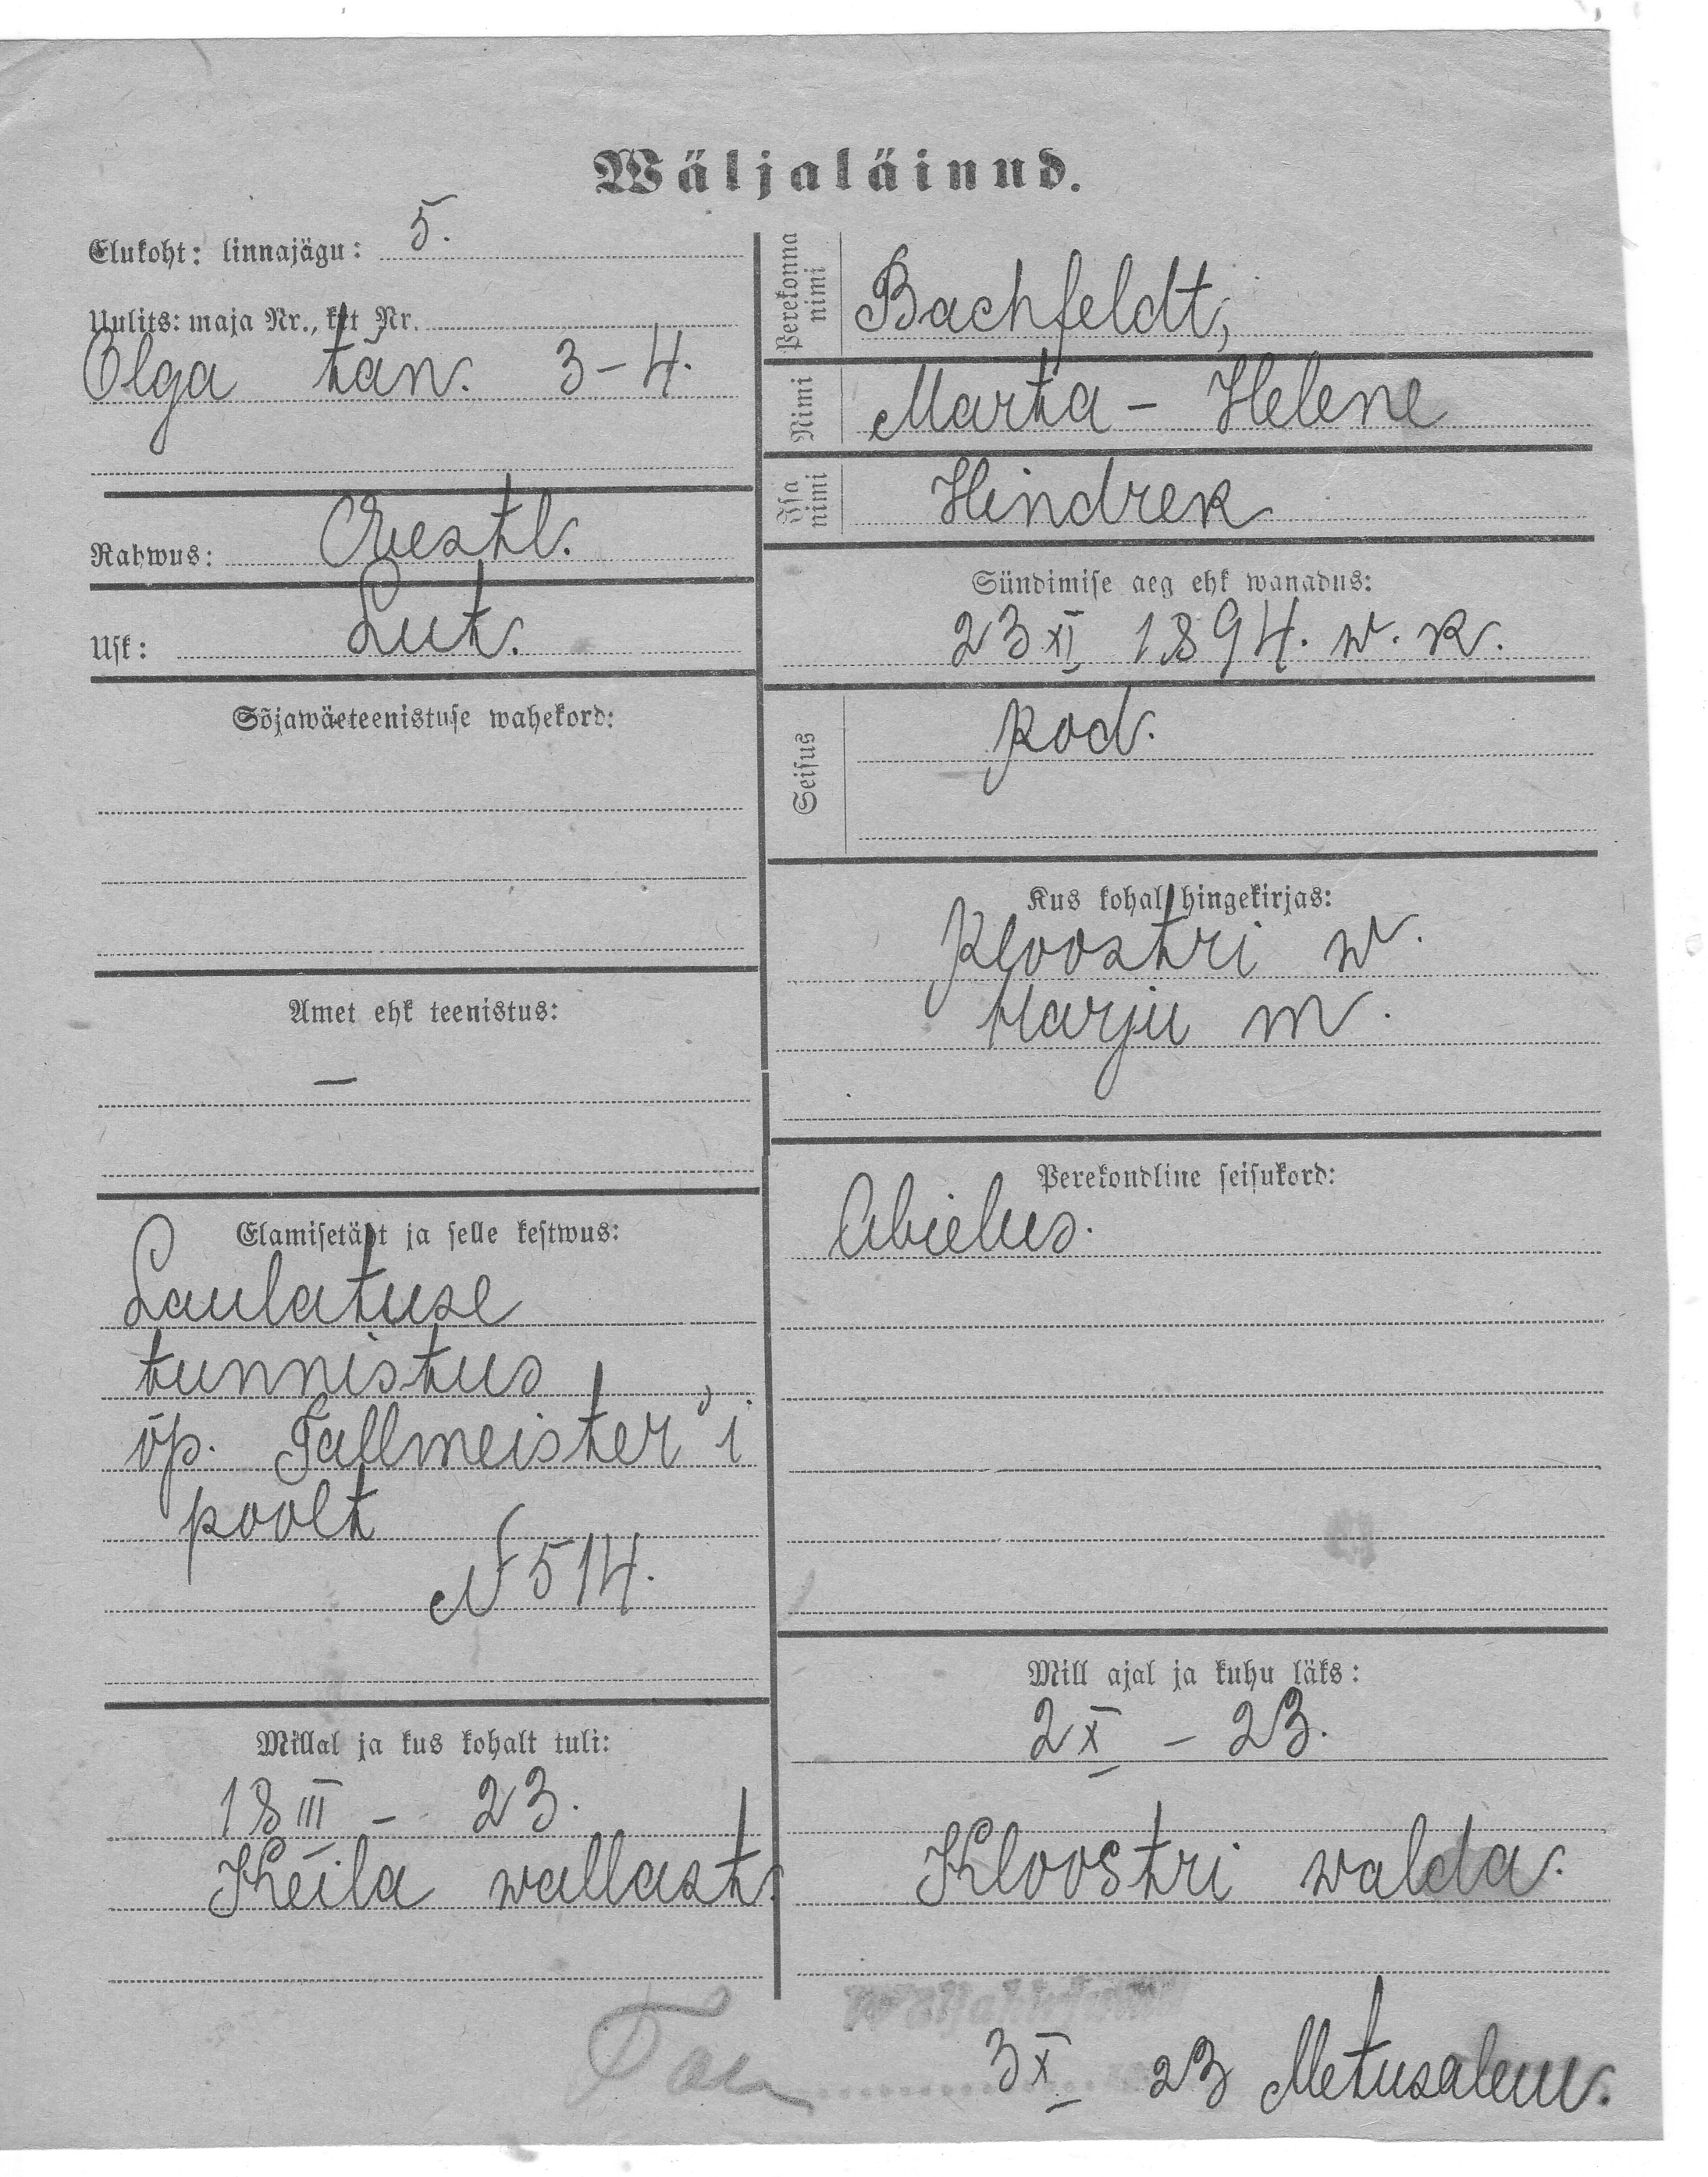 Wäljaläinud.
Elukoht: linnajägu: 5.
Uulits: maja Nr., krt Nr.
Olga tän. 3-4.
Rahwus: Eestl.
Usk: Lut.
Sõjawäeteenistuse wahekord:
Amet ehk teenistus:
—
Elamisetäht ja selle kestwus:
Laulatuse
tunnistus
õp. Tallmeister'i
poolt
N 514.
Millal ja kus kohalt tuli:
18 III - 23.
Keila wallast.
Perekonna nimi Bachfeldt,
Nimi Marta - Helene
Isa nimi Hindrek
Sündimise aeg ehk wanadus:
23 XI 1894. w. k.
Seisus kod.
Kus kohal hingekirjas:
Kloostri w.
Harju m.
Perekondline seisukord:
Abielus.
Mill ajal ja kuhu läks:
2 X - 23.
Kloostri walda.
3 X 23 Metusalem.